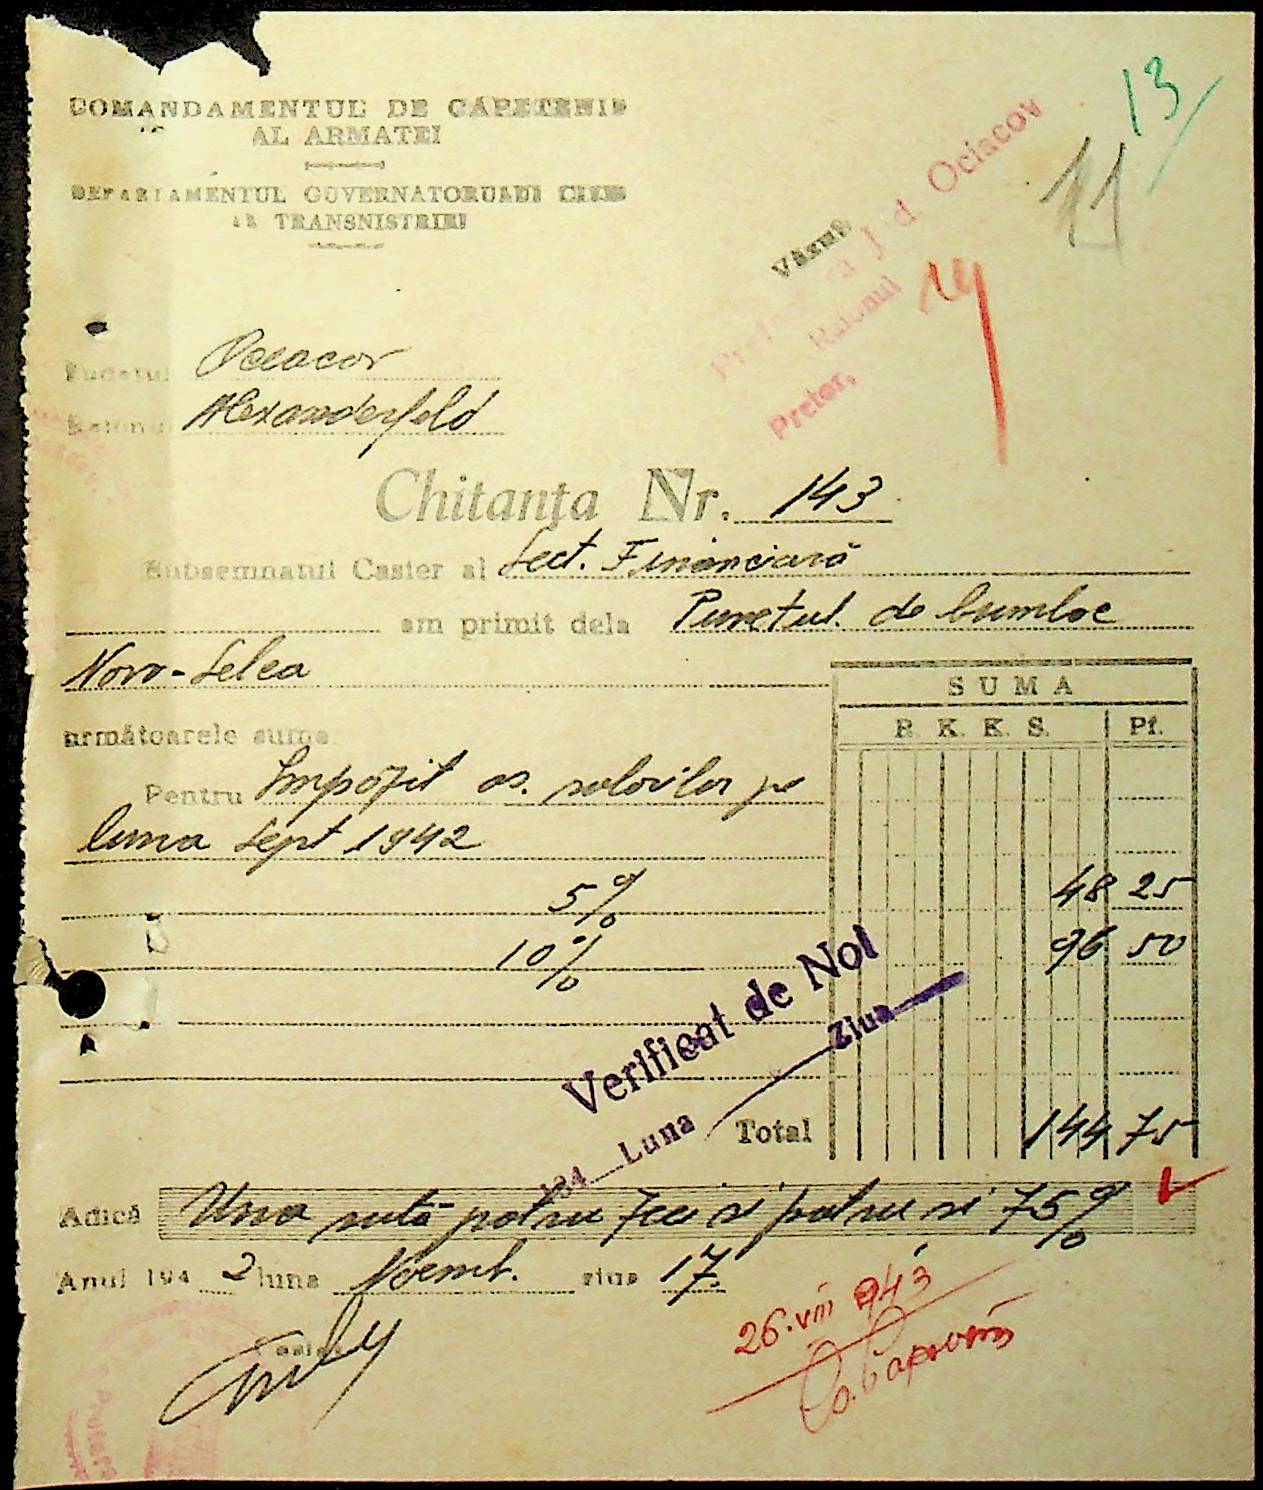 COMANDAMENTUL DE CAPETENIE
AL ARMATEI
DEPARTAMENTUL GUVERNATORULUI CIVIL
AL TRANSNISTRIEI
13
11
14
Văzut
J. d. Ociacov
Raionul
Pretor,
Județul Oceacov
Raionul Alexanderfeld
Chitanța Nr. 143
Subsemnatul Casier al Sect. Financiară
am primit dela Punctul de bumbac
Novo-Selea
următoarele sume
SUMA
R. K. K. S. Pf.
Pentru Impozit as. salariilor pe
luna Sept 1942
5% 48 25
10% 96 50
Verificat de Noi
194 Luna Ziua
Total 144 75
Adică Una sută patru zeci si patru si 75%
Anul 194 2 luna Noemb. ziua 17.
Casier
26.VIII 943